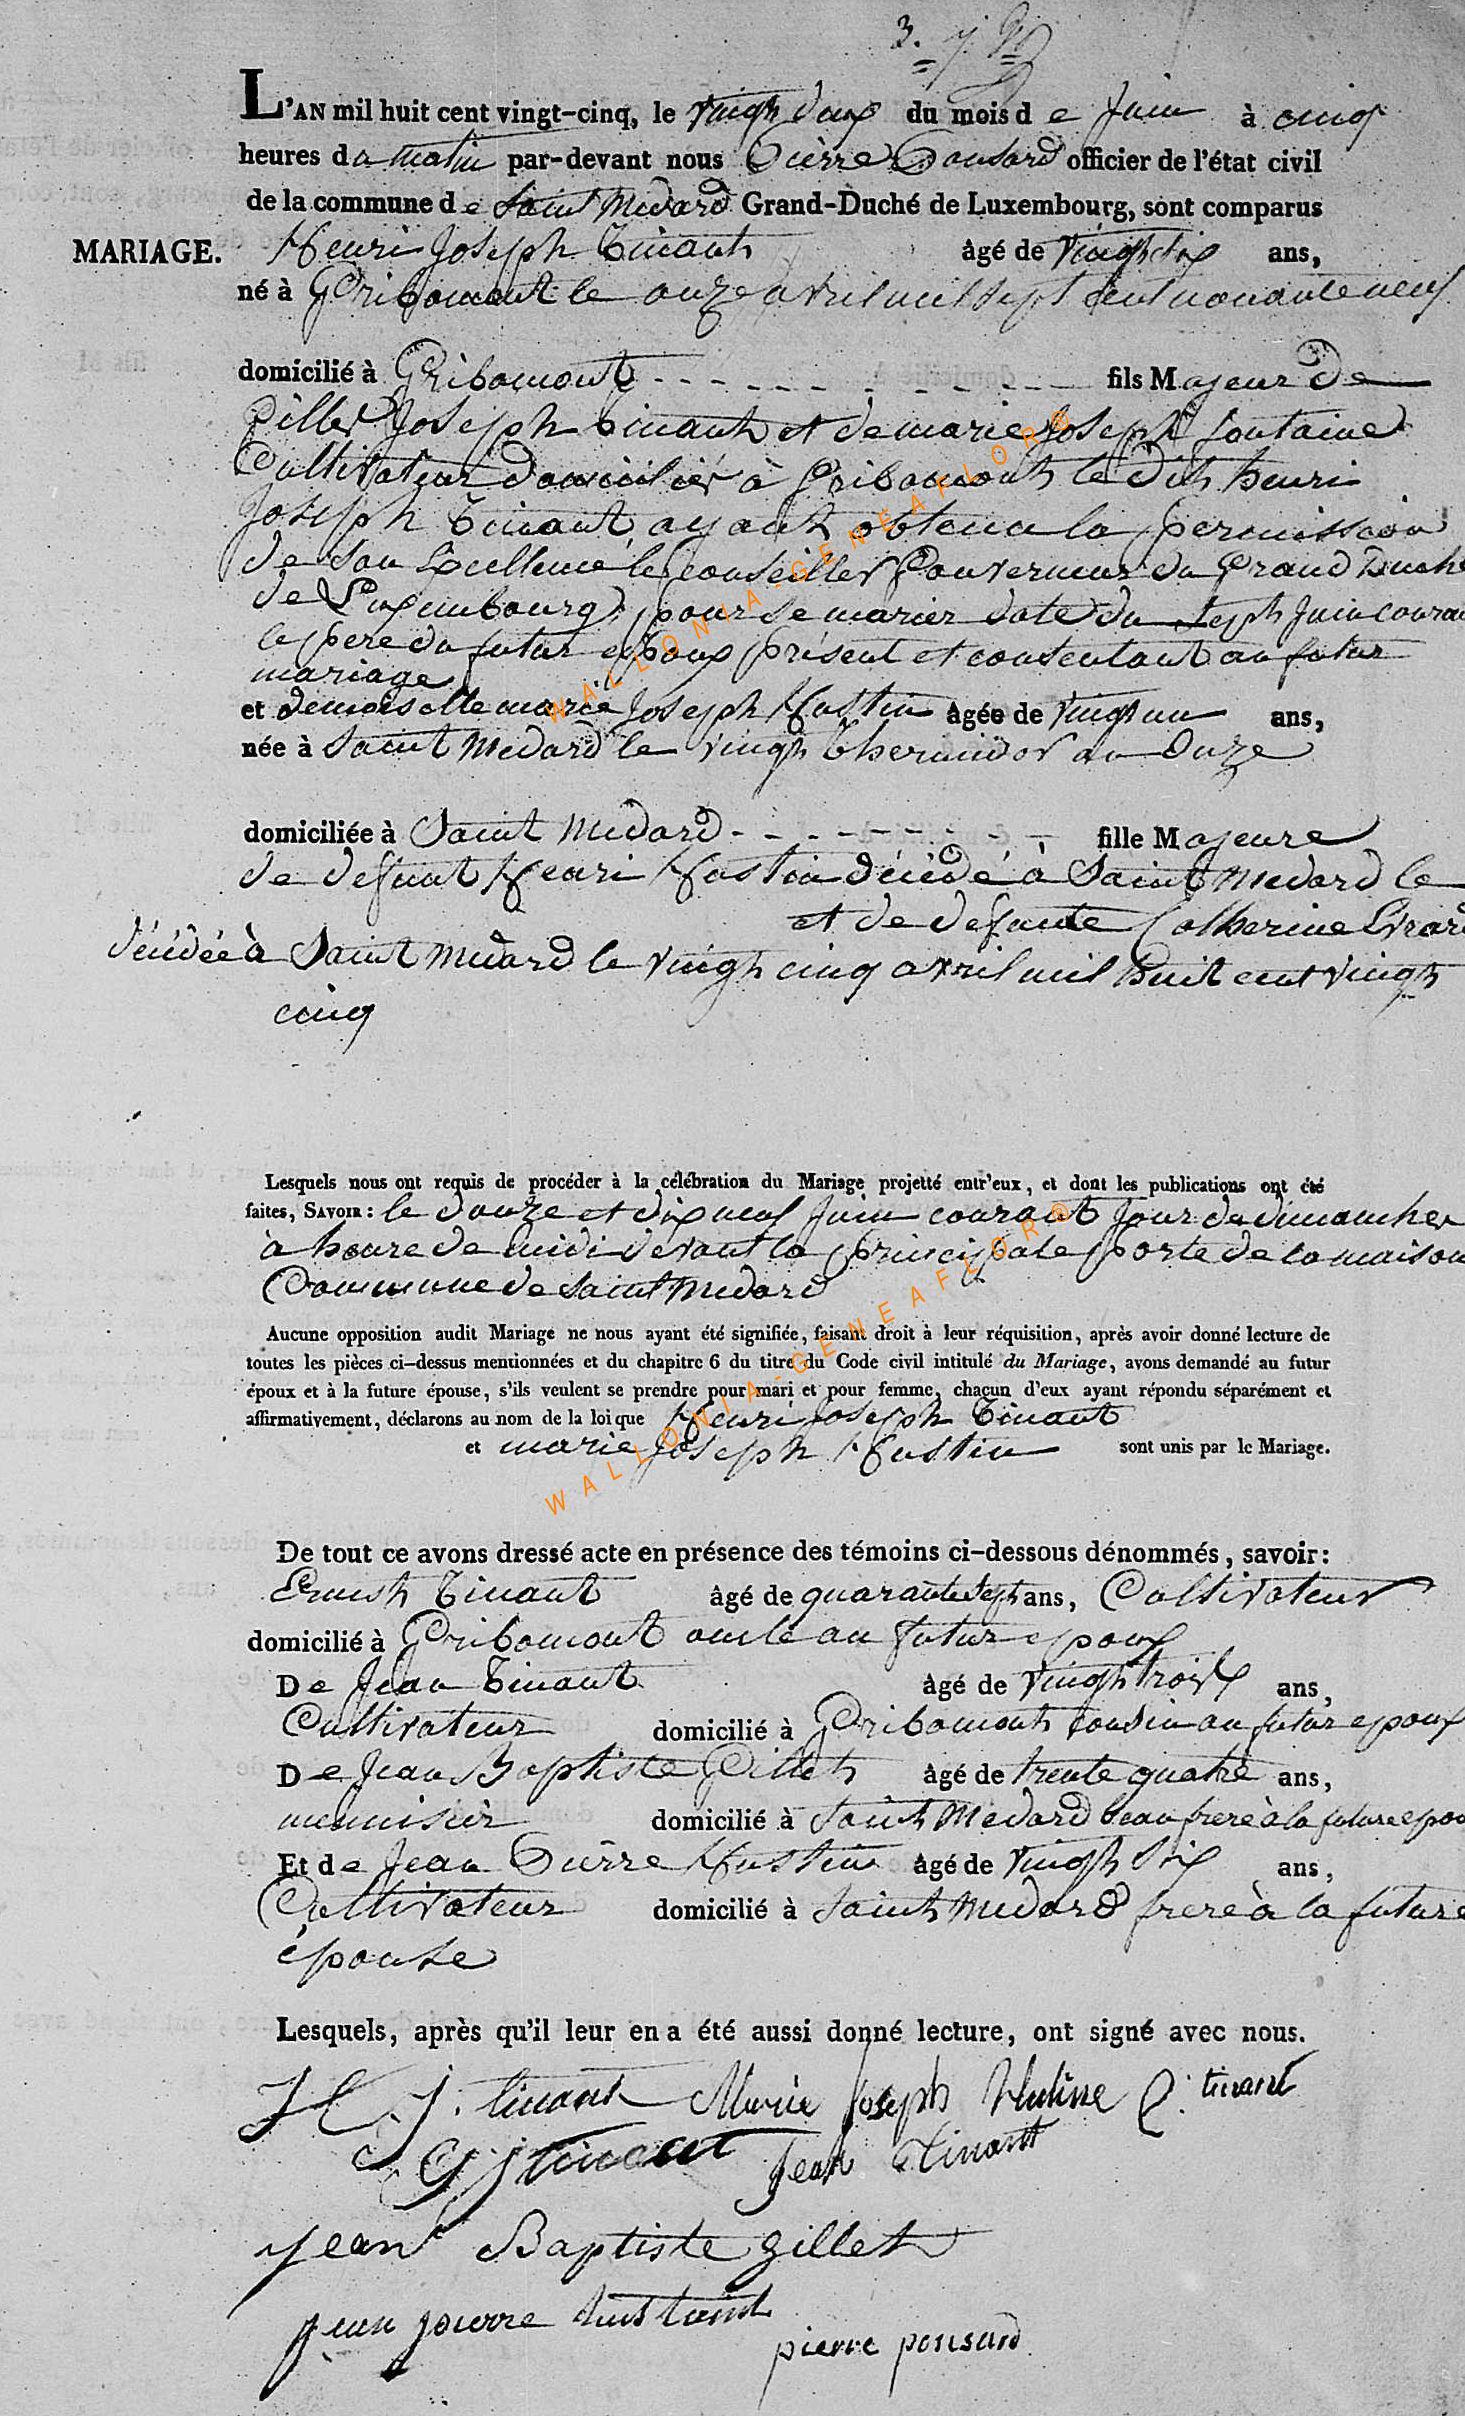 3.
L'AN mil huit cent vingt-cinq, le vingt deux du mois de Juin à cinq
heures du matin par-devant nous Pierre Ponsard officier de l'état civil
de la commune de Saint Medard Grand-Duché de Luxembourg, sont comparus
MARIAGE. Henri Joseph Tinant âgé de vingt six ans,
né à Gribomont le onze avril mil sept cent nonante neuf
domicilié à Gribomont fils Majeur de
Gille Joseph Tinant et de marie Joseph fontaine
Cultivateur domiciliér à Gribomont le dit henri
Joseph Tinant, ayant obtenu la permission
de Son Excellence le Conseiller Gouverneur du Grand Duché
de Luxembourg, pour se marier daté du Sept Juin coura
le pere du futur epoux présent et consentant au futur
mariage
et demoiselle marie Joseph Hustin âgée de vingt un ans,
née à Saint Medard le vingt thermidor an Onze
domiciliée à Saint Medard fille Majeure
de defunt Henri Hustin décédé à Saint Medard le
et de defunte Catherine Evrard
décédée à Saint Medard le vingt cinq avril mil huit cent vingt
cinq
Lesquels nous ont requis de procéder à la célébration du Mariage projetté entr'eux, et dont les publications ont été
faites, SAVOIR : le douze et dix neuf Juin courant Jour de dimancher
à heure de midi devant la principale porte de la maison
Commune de Saint Medard
Aucune opposition audit Mariage ne nous ayant été signifiée, faisant droit à leur réquisition, après avoir donné lecture de
toutes les pièces ci-dessus mentionnées et du chapitre 6 du titre du Code civil intitulé du Mariage, avons demandé au futur
époux et à la future épouse, s'ils veulent se prendre pour mari et pour femme, chacun d'eux ayant répondu séparément et
affirmativement, déclarons au nom de la loi que Henri Joseph Tinant
et marie Joseph Hustin sont unis par le Mariage.
De tout ce avons dressé acte en présence des témoins ci-dessous dénommés, savoir :
Ernest Tinant âgé de quarante Sept ans, Cultivateur
domicilié à Gribomont oncle au futur epoux
De Jean Tinant âgé de vingt trois ans,
Cultivateur domicilié à Gribomont Cousin au futur epoux
De Jean Baptiste Gillet âgé de trente quatre ans,
menuisier domicilié à Saint Medard beau frere à la future epou
Et de Jean Pierre Hustin âgé de vingt Six ans,
Cultivateur domicilié à Saint Medard frere à la future
épouse
Lesquels, après qu'il leur en a été aussi donné lecture, ont signé avec nous.
H. J. tinant Marie Joseph Hustinne E. tinant
G J tinant Jean Tinant
Jean Baptiste gillet
jean pierre
pierre ponsard
WALLONIA-GENEAFLOR®
WALLONIA-GENEAFLOR®